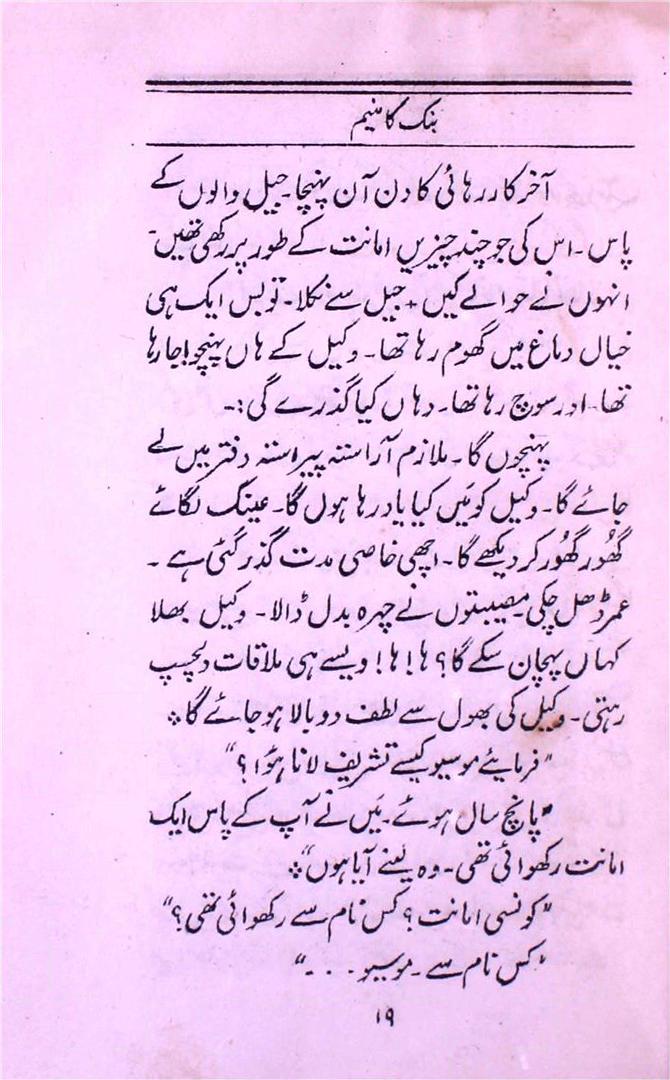 بنک کا منیم
آخر کار رہائی کا دن آن پہنچا۔ جیل والوں کے
پاس۔ اس کی جو چند چیزیں امانت کے طور پر رکھی تھیں۔
انہوں نے حوالے کیں + جیل سے نکلا۔ تو بس ایک ہی
خیال دماغ میں گھوم رہا تھا۔ وکیل کے ہاں پہنچو! جا رہا
تھا۔ اور سوچ رہا تھا۔ وہاں کیا گذرے گی :۔
پہنچوں گا۔ ملازم آراستہ پیراستہ دفتر میں لے
جائے گا۔ وکیل کو مَیں کیا یاد رہا ہوں گا۔ عینک لگائے
گھُور گھُور کر دیکھے گا۔ اچھی خاصی مدت گذر گئی ہے۔
عمر ڈھل چکی۔ مصیبتوں نے چہرہ بدل ڈالا۔ وکیل بھلا
کہاں پہچان سکے گا؟ ہا! ہا! ویسے ہی ملاقات دلچسپ
رہتی۔ وکیل کی بھول سے لطف دوبالا ہو جائے گا ٭
"فرمائیے موسیو کیسے تشریف لانا ہؤا؟"
"پانچ سال ہوئے۔ مَیں نے آپ کے پاس ایک
امانت رکھوائی تھی۔ وہ لینے آیا ہوں" ٭
"کونسی امانت؟ کس نام سے رکھوائی تھی؟"
"کس نام سے۔ موسیو . . . ."
۱۹